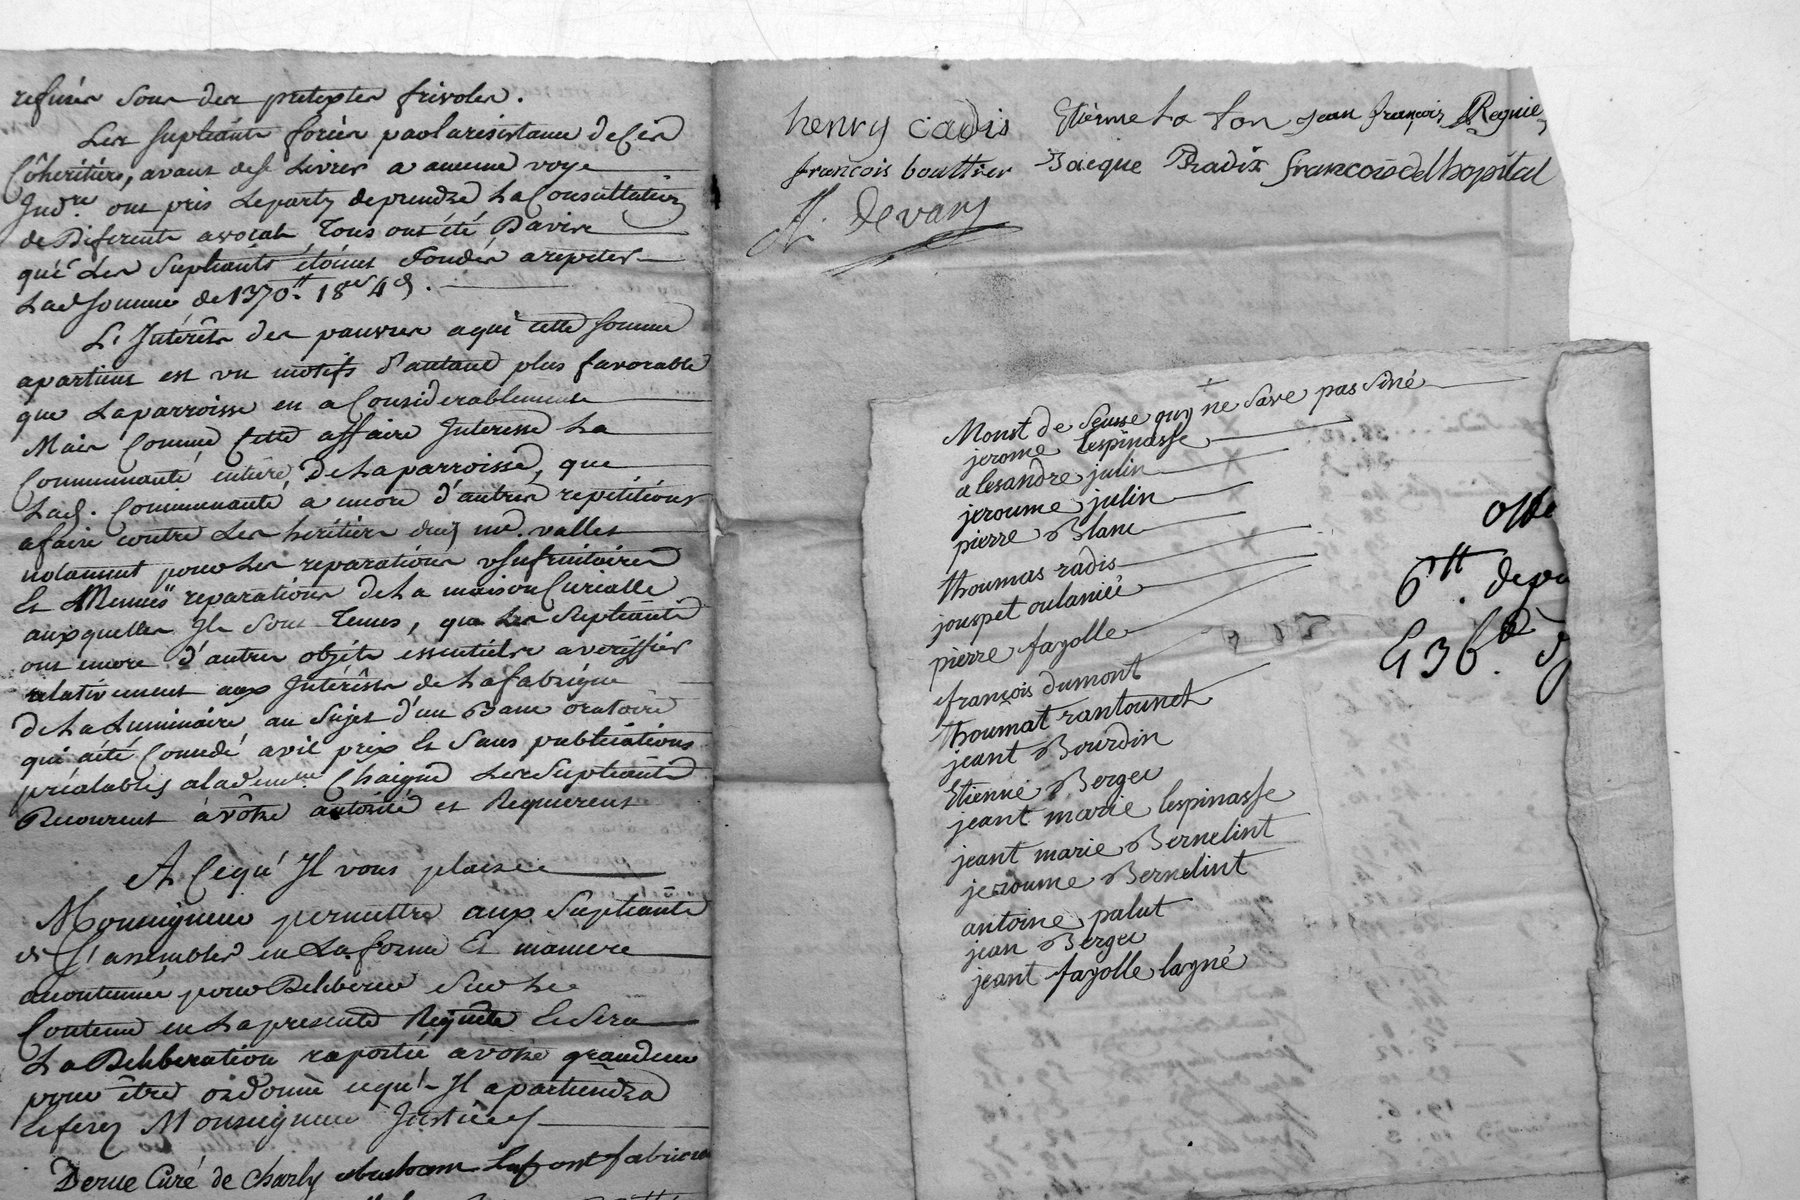 refuser sous des pretextes frivoles.
Les supliants forcés par la resistance de ces
Côhéritiers, avant de se Livrer a aucune voye
Judre. ont pris Le party de prendre La Consultation
de Diferents avocats Tous ont été D'avis
qué Les Supliants étoient fondés a repeter
Lad. somme de 1370tt. 18s 4d.
L'Interêts des pauvres a qui cette somme
apartient est un motifs d'autant plus favorable
que La parroisse en a Considerablement
Mais Comme Cette affaire Interesse La
Communauté entière De La parroisse, que
Lad. Communauté a encore d'autres repetitions
a faire contre Les heritiers dud. valles
notament pour Les reparations usufruitaires
Et Menues reparations de La maison Curialle
auxquelles Ils Sont Tenus, que Les Supliants
ont encore d'autres objéts essentiels a veriffier
relativement aux Interêts de La fabrique
de La Luminaire au Sujet d'un Banc oratoire
qui a été Concedé a vil prix Et Sans publications
préalables a la dem.lle Chaigne Les Supliants
Recourent à vôtre autorité et Requierent
A Ce qu'Il vous plaise
Monseigneur permettre aux Supliants
de s'assembler en La forme Et maniere
acoutumée pour Deliberer Sur Le
Contenu en La presente Requete Et Sera
La Deliberation raportée a votre grandeur
pour être ordonné ce qu'Il apartiendra
Et ferez Monseigneur Justice
Derue Curé de Charly abraham Lafont fabricien
henry cadis Etienne La fon jean françois Regnie
françois bouttier Jacque Radix francois delhopital
A. Devars
Monst de Seusse quy ne save pas siné
jerome lespinasse
alesandre julin
jeroume julin
pierre Blanc
thoumas radis
jouspet oulanié
pierre fayolle
françois dumont
thoumat rantounet
jeant Bourdin
Etienne Berger
jeant marie lespinasse
jeant marie Bernelint
jeroume Bernelint
antoine palut
jean Berger
jeant fayolle layné
6tt. depu
436